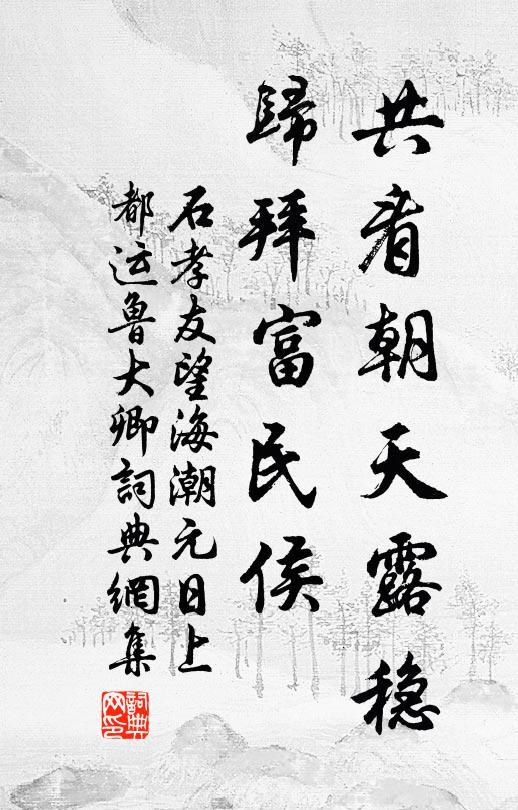 共看朝天露稳
歸拜富民侯
石孝友望海潮元日上
都运魯大卿詞典網集
詞典
网印